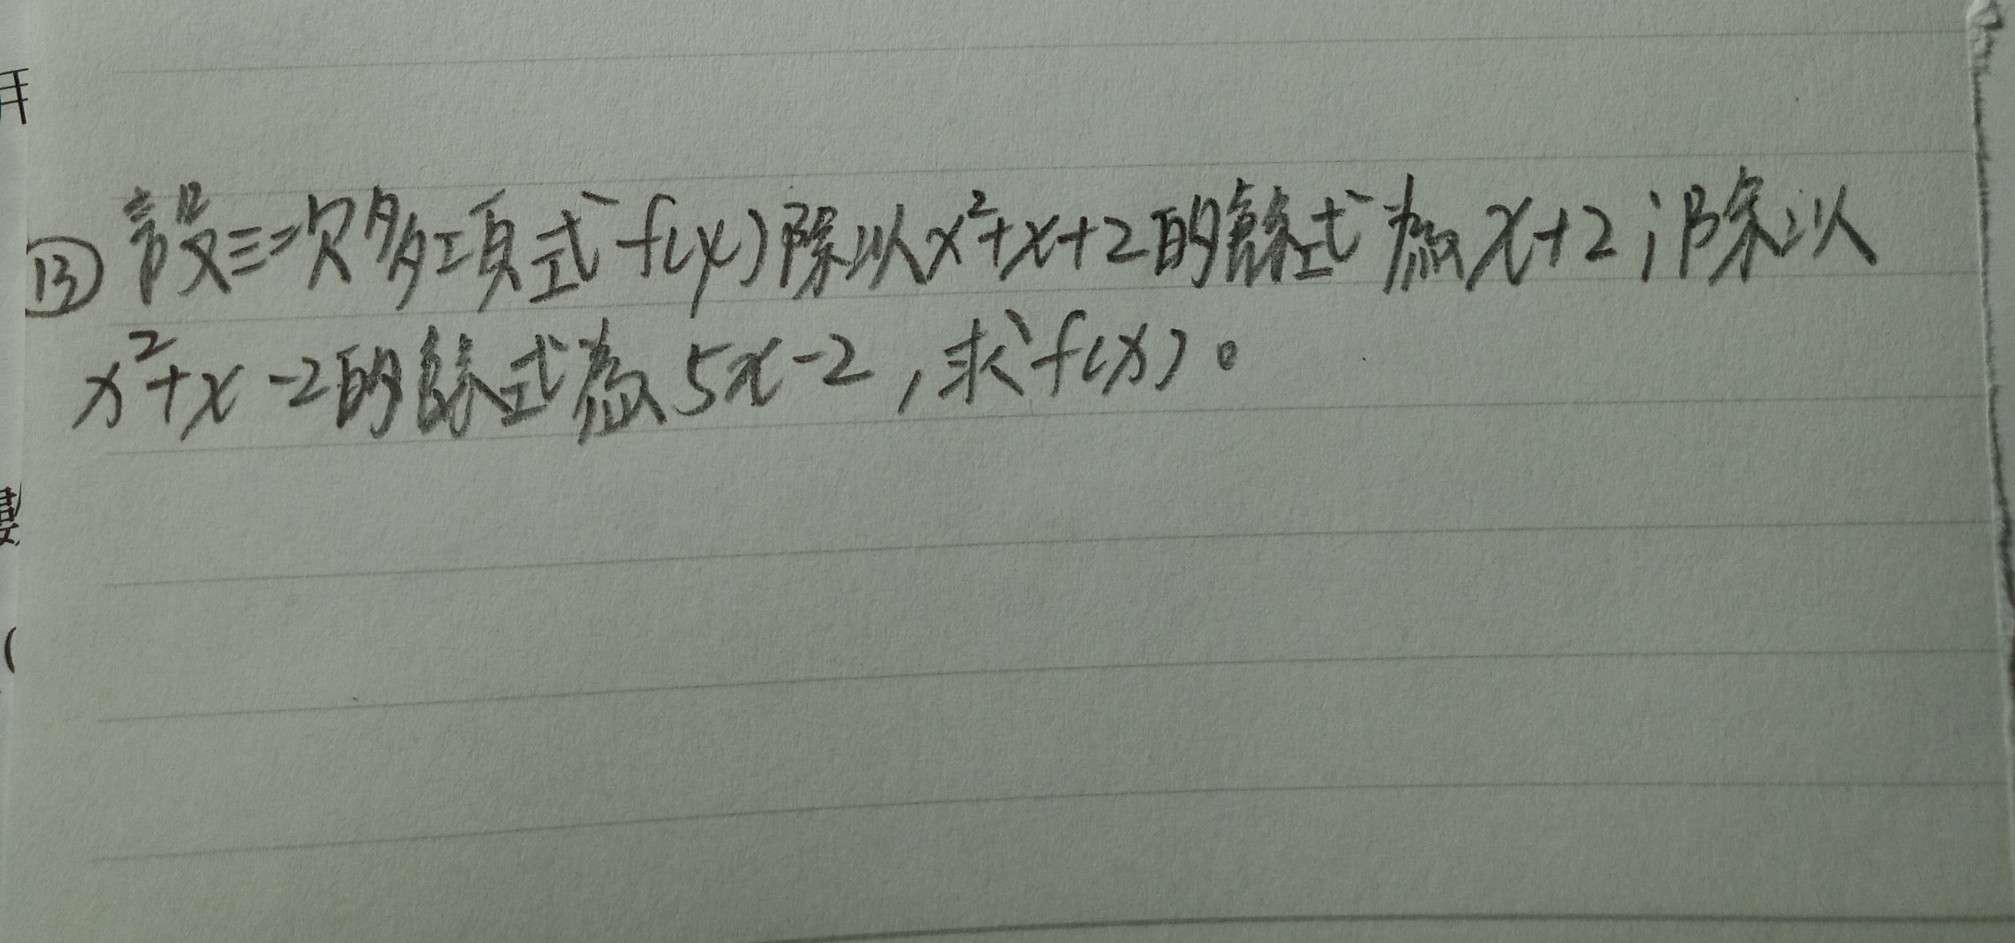 ⑬ 設三次多項式f(x)除以x²+x+2的餘式為x+2;除以
x²+x-2的餘式為5x-2,求f(x)。